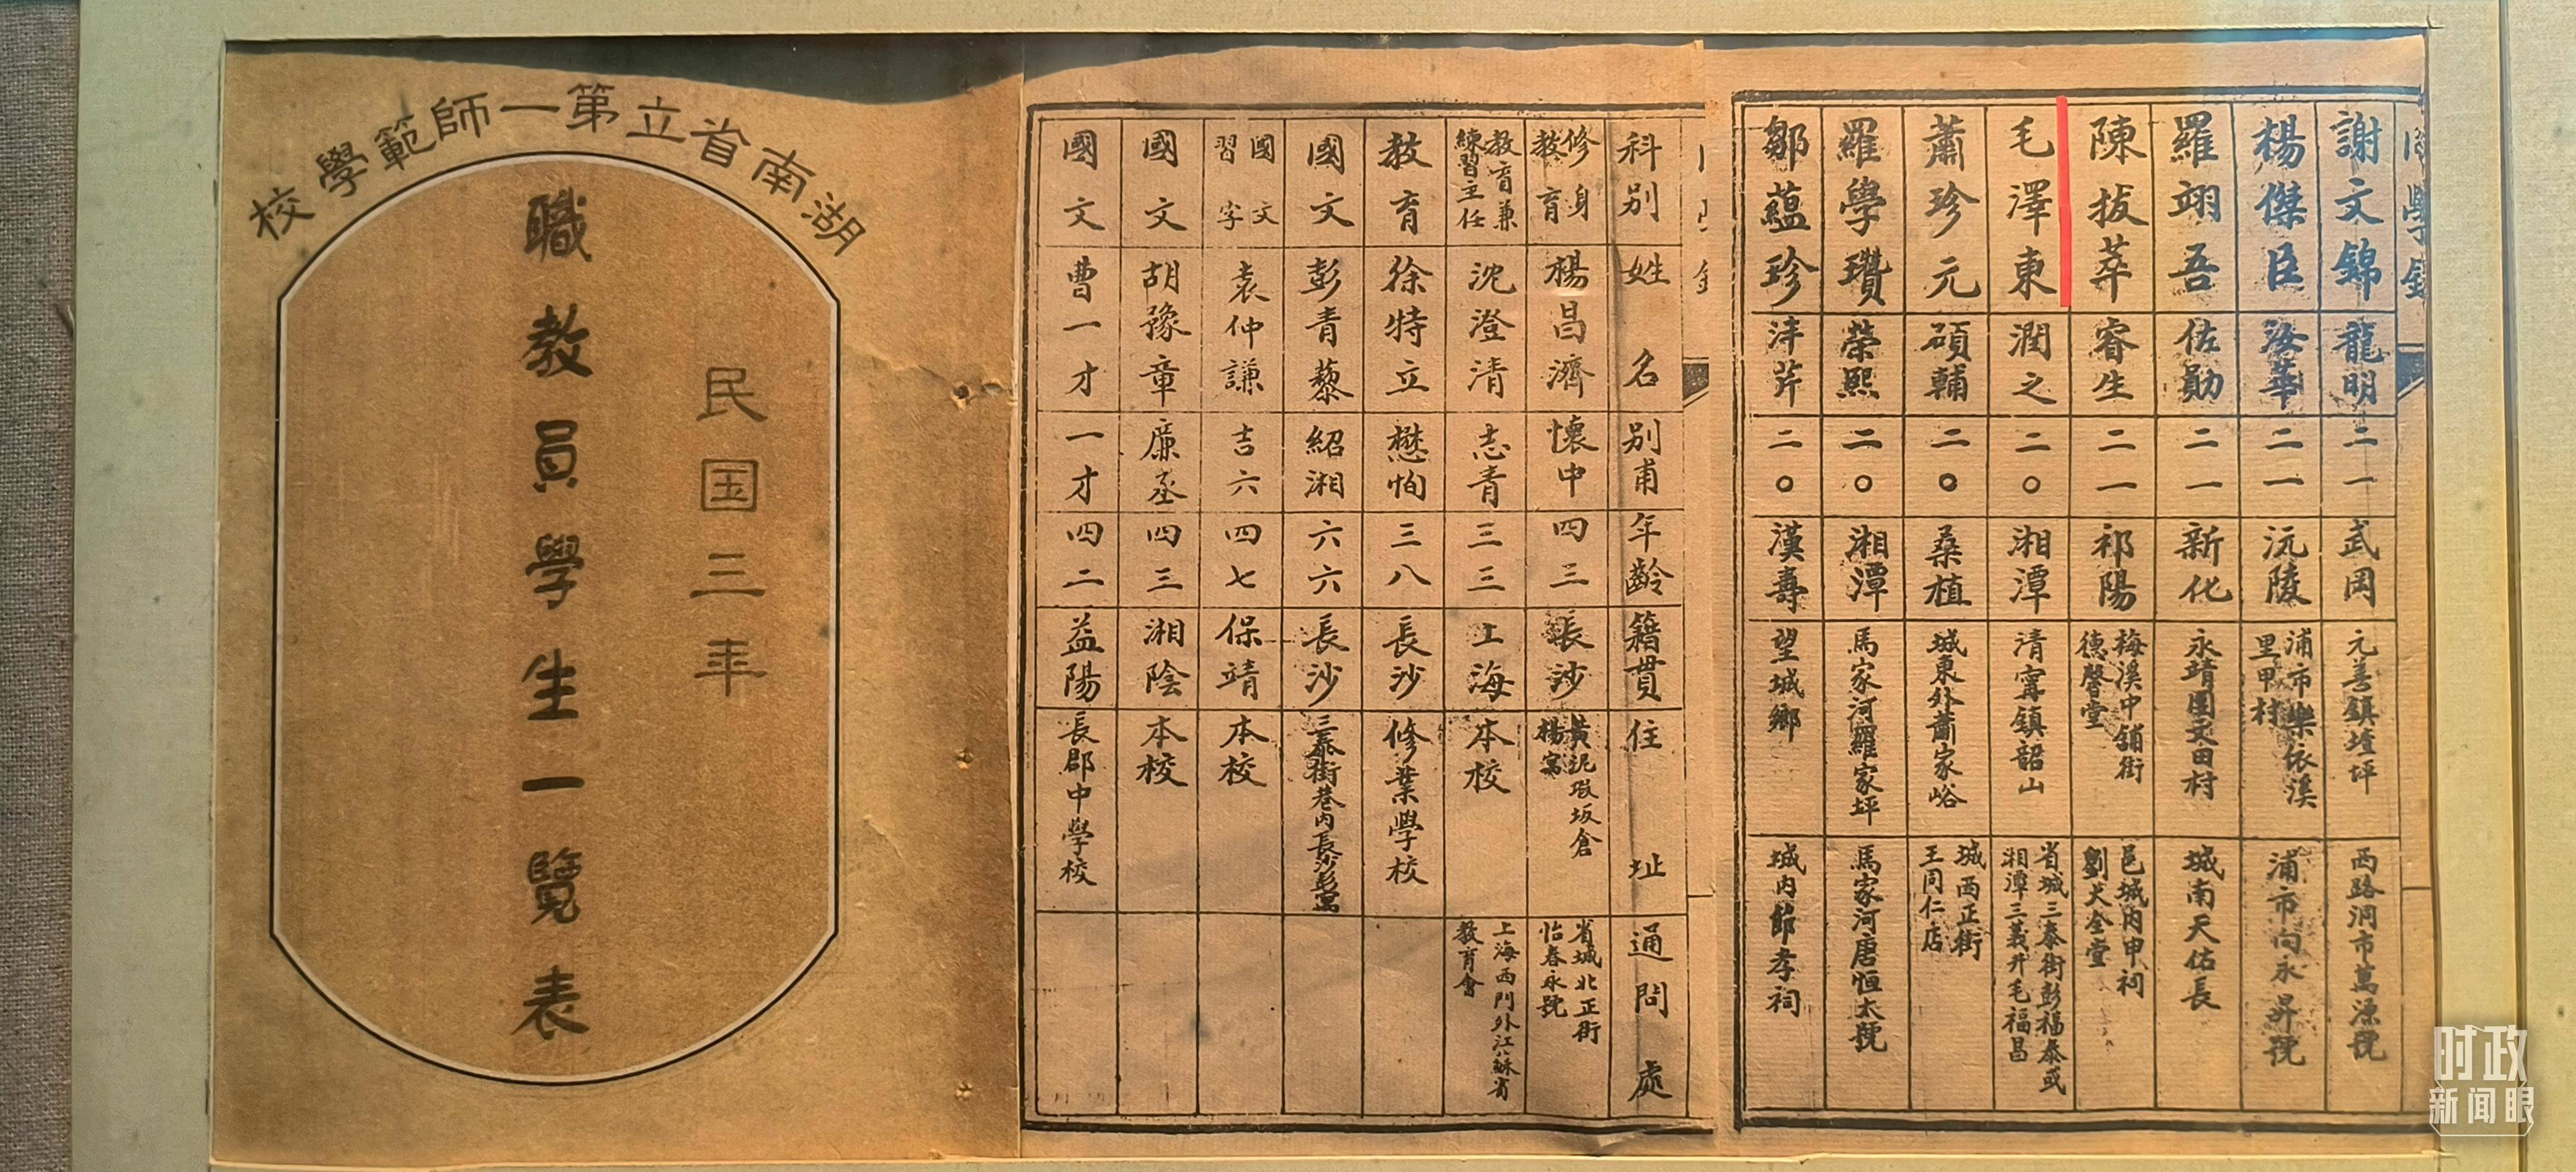 湖南省立第一師範學校
民国三年
職教員學生一覽表
科別 姓名 別甫 年齡 籍貫 住址 通問處
修身教育 楊昌濟 懷中 四三 長沙 黃泥塅坂倉楊寓 省城北正街怡春永號
教育兼練習主任 沈澄清 志青 三三 上海 本校 上海西門外江蘇省教育會
教育 徐特立 懋恂 三八 長沙 修業學校
國文 彭青藜 紹湘 六六 長沙 三泰街巷內長沙彭寓
國文習字 袁仲謙 吉六 四七 保靖 本校
國文 胡豫章 廉丞 四三 湘陰 本校
國文 曹一才 一才 四二 益陽 長郡中學校
同學錄
謝文錦 龍明 二一 武岡 元善鎮 西路洞市萬源號
楊傑臣 海華 二一 沅陵 浦市樂依溪里甲村 浦市向永昇號
羅翊吾 佐勛 二一 新化 永靖團文田村 城南天佑長
陳拔萃 睿生 二一 祁陽 梅溪中舖街德馨堂 邑城內申祠劉大全堂
毛澤東 潤之 二〇 湘潭 清寗鎮韶山 省城三泰街彭福泰或湘潭三義升毛福昌
蕭珍元 碩輔 二〇 桑植 城東外蕭家峪 城西正街王同仁店
羅學瓚 榮熙 二〇 湘潭 馬家河羅家坪 馬家河唐恒太號
鄒蘊珍 泮芹 二〇 漢壽 望城鄉 城內節孝祠
时政
新闻眼